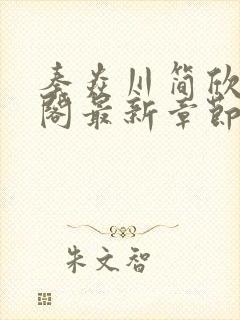 秦炎川简欣
阁最新章节
朱文智